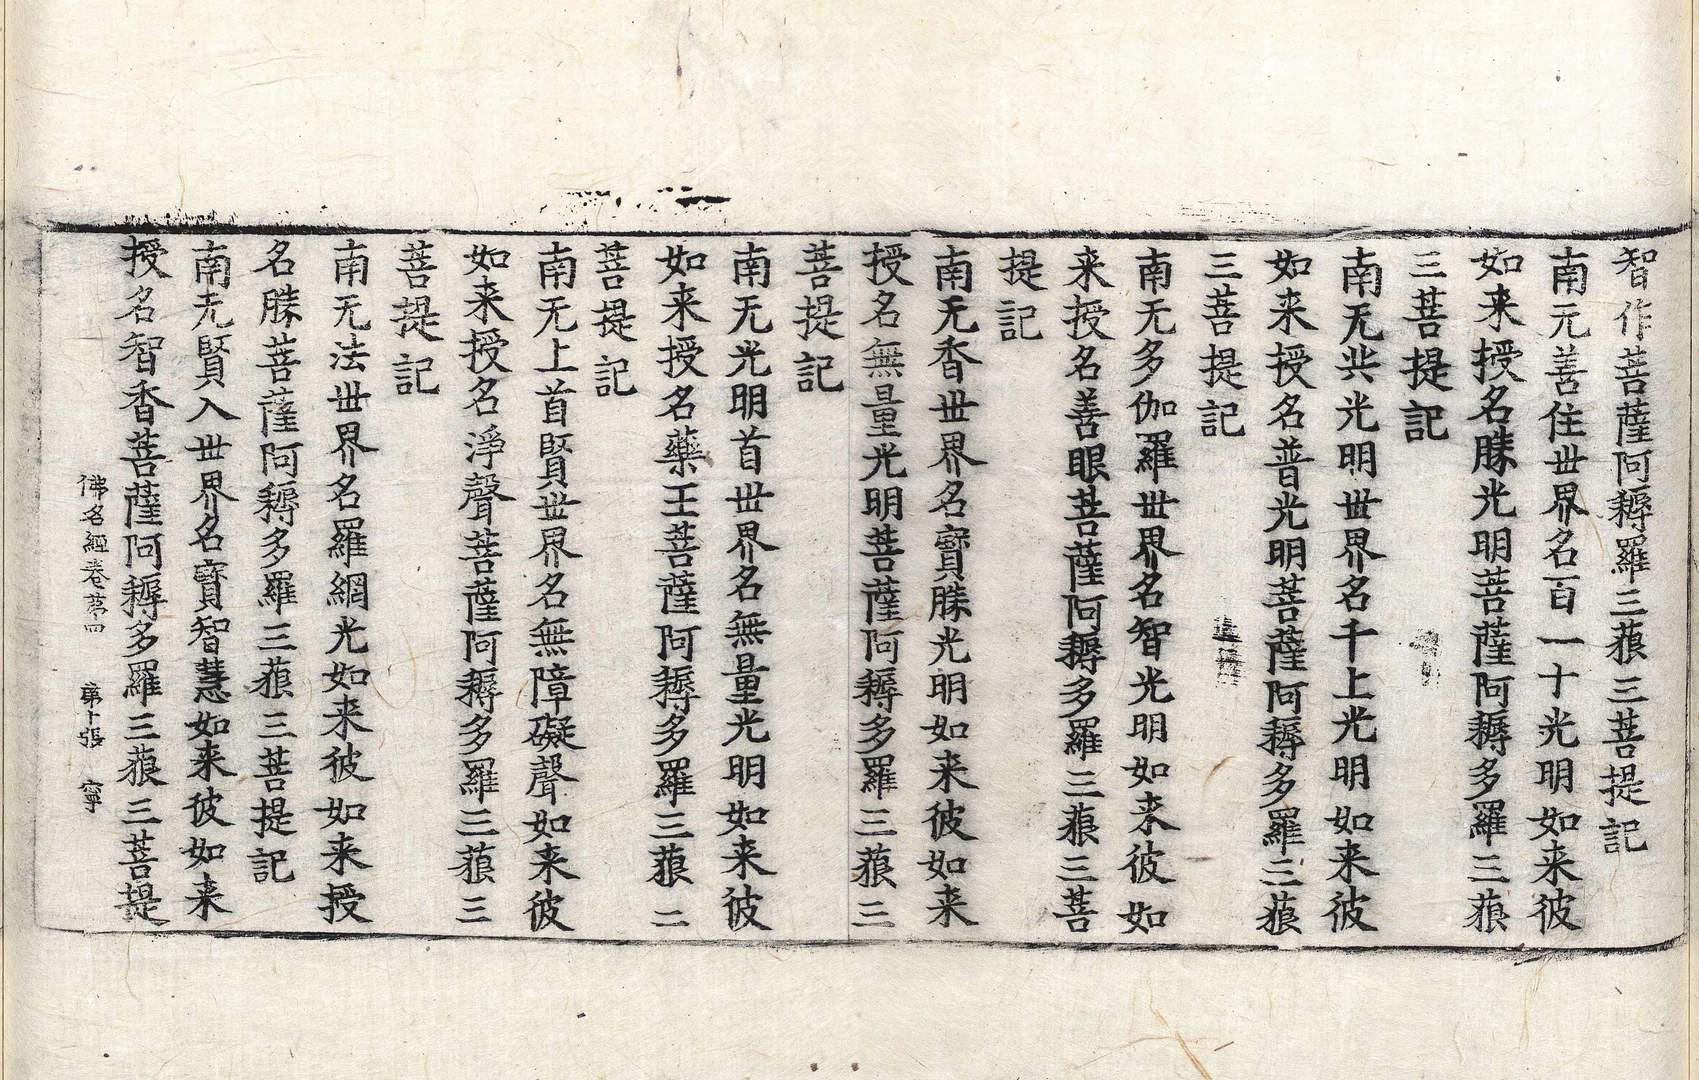 智作菩薩阿耨羅三藐三菩提記
南无善住世界名百一十光明如来彼
如来授名勝光明菩薩阿耨多羅三藐
三菩提記
南无𠀍光明世界名千上光明如来彼
如来授名普光明菩薩阿耨多羅三藐
三菩提記
南无多伽羅世界名智光明如来彼如
来授名善眼菩薩阿耨多羅三藐三菩
提記
南无香世界名寶勝光明如来彼如来
授名無量光明菩薩阿耨多羅三藐三
菩提記
南无光明首世界名無量光明如来彼
如来授名藥王菩薩阿耨多羅三藐二
菩提記
南无上首賢世界名無障礙聲如来彼
如来授名淨聲菩薩阿耨多羅三藐三
菩提記
南无法世界名羅網光如来彼如来授
名勝菩薩阿耨多羅三藐三菩提記
南无賢入世界名寶智慧如来彼如来
授名智香菩薩阿耨多羅三藐三菩提
佛名經卷第四　第十張　寧